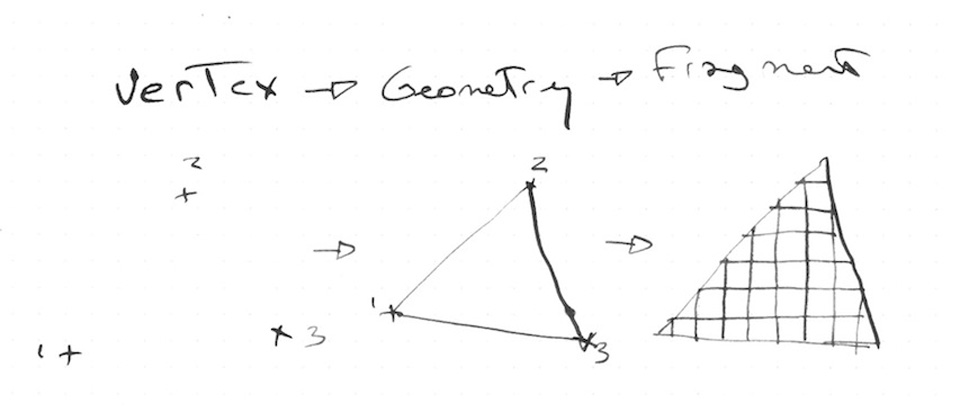 Vertex → Geometry → Fragment
2
2
1
3
1
3